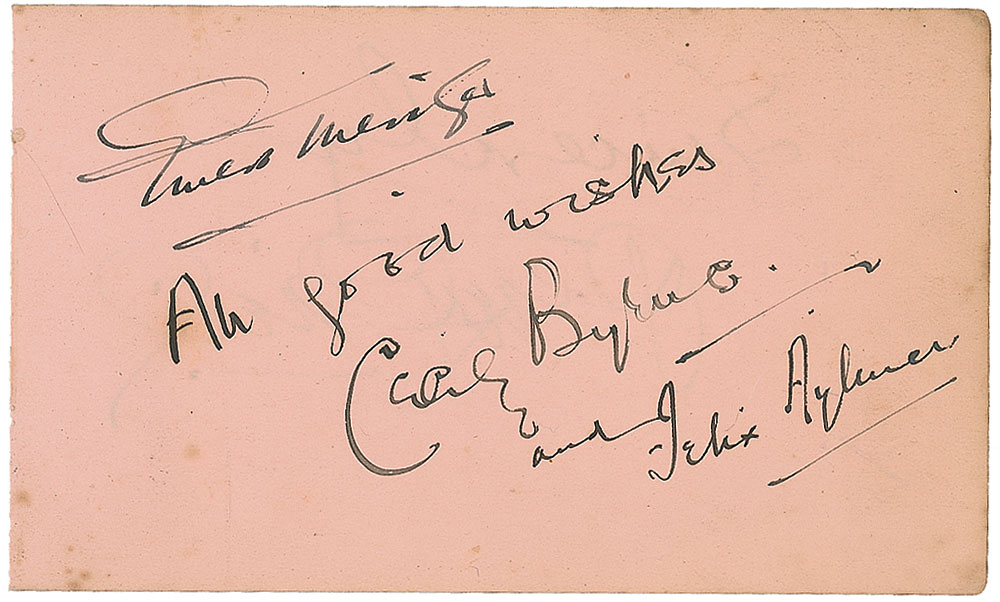 All good wishes
Cecily Byrne.
and Felix Aylmer